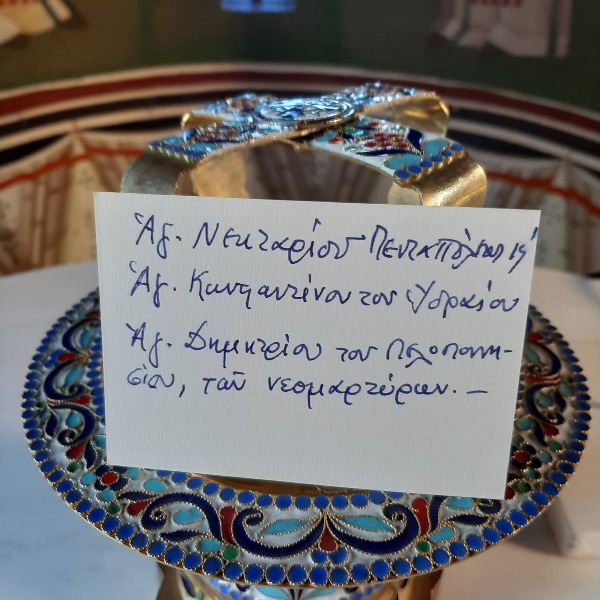 Ἁγ. Νεκταρίου Πενταπόλεως
Ἁγ. Κωνσταντίνου τοῦ Ὑδραίου
Ἁγ. Δημητρίου τοῦ Πελοποννη-
σίου, τῶν νεομαρτύρων. —